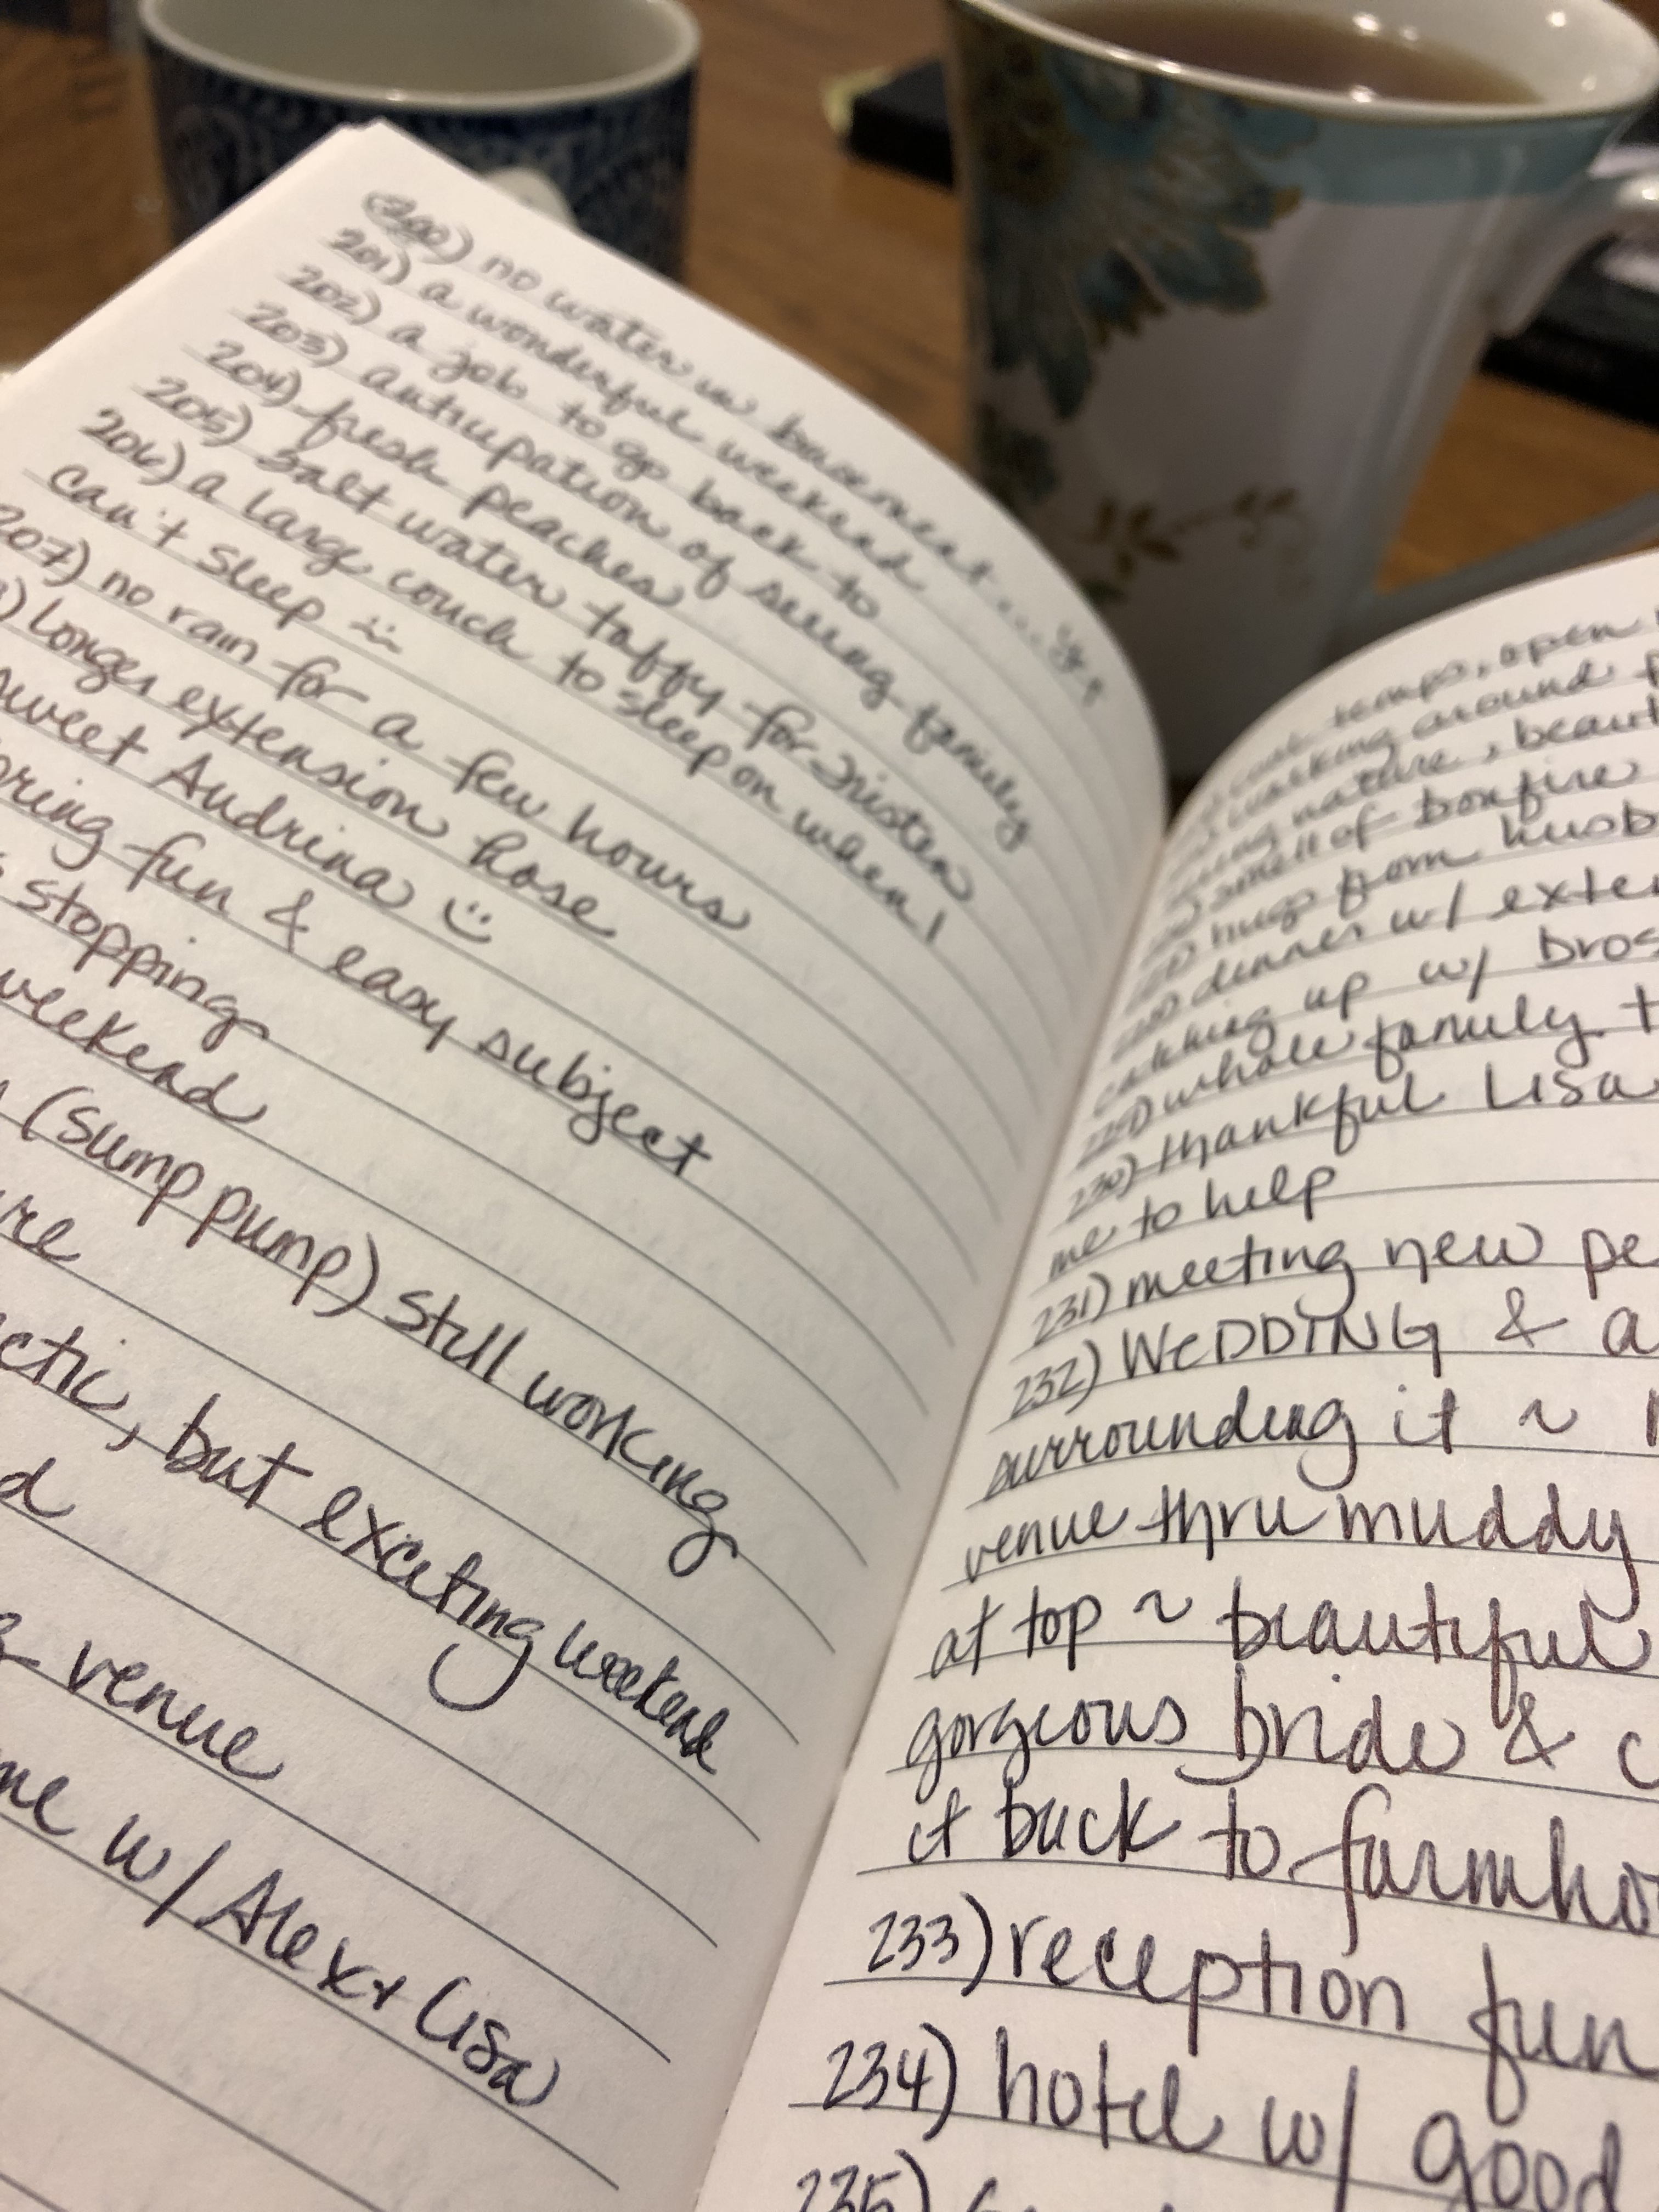 200) no water in basement... yet
201) a wonderful weekend
202) a job to go back to
203) anticipation of seeing family
204) fresh peaches
205) salt water taffy for Tristen
206) a large couch to sleep on when I
can't sleep
207) no rain for a few hours
) longer extension hose
sweet Audrina :)
fun & easy subject
stopping
weekend
(sump pump) still working
but exciting weekend
& venue
w/ Alex + Lisa
temps, open
walking around
nature, beaut
smell of bonfire
hugs from husb
dinner w/ exten
catching up w/ bros
229) whole family t
230) thankful Lisa
me to help
231) meeting new pe
232) WEDDING & a
surrounding it ~
venue thru muddy
at top ~ beautiful
gorgeous bride & c
it back to farmho
233) reception fun
234) hotel w/ good
235)